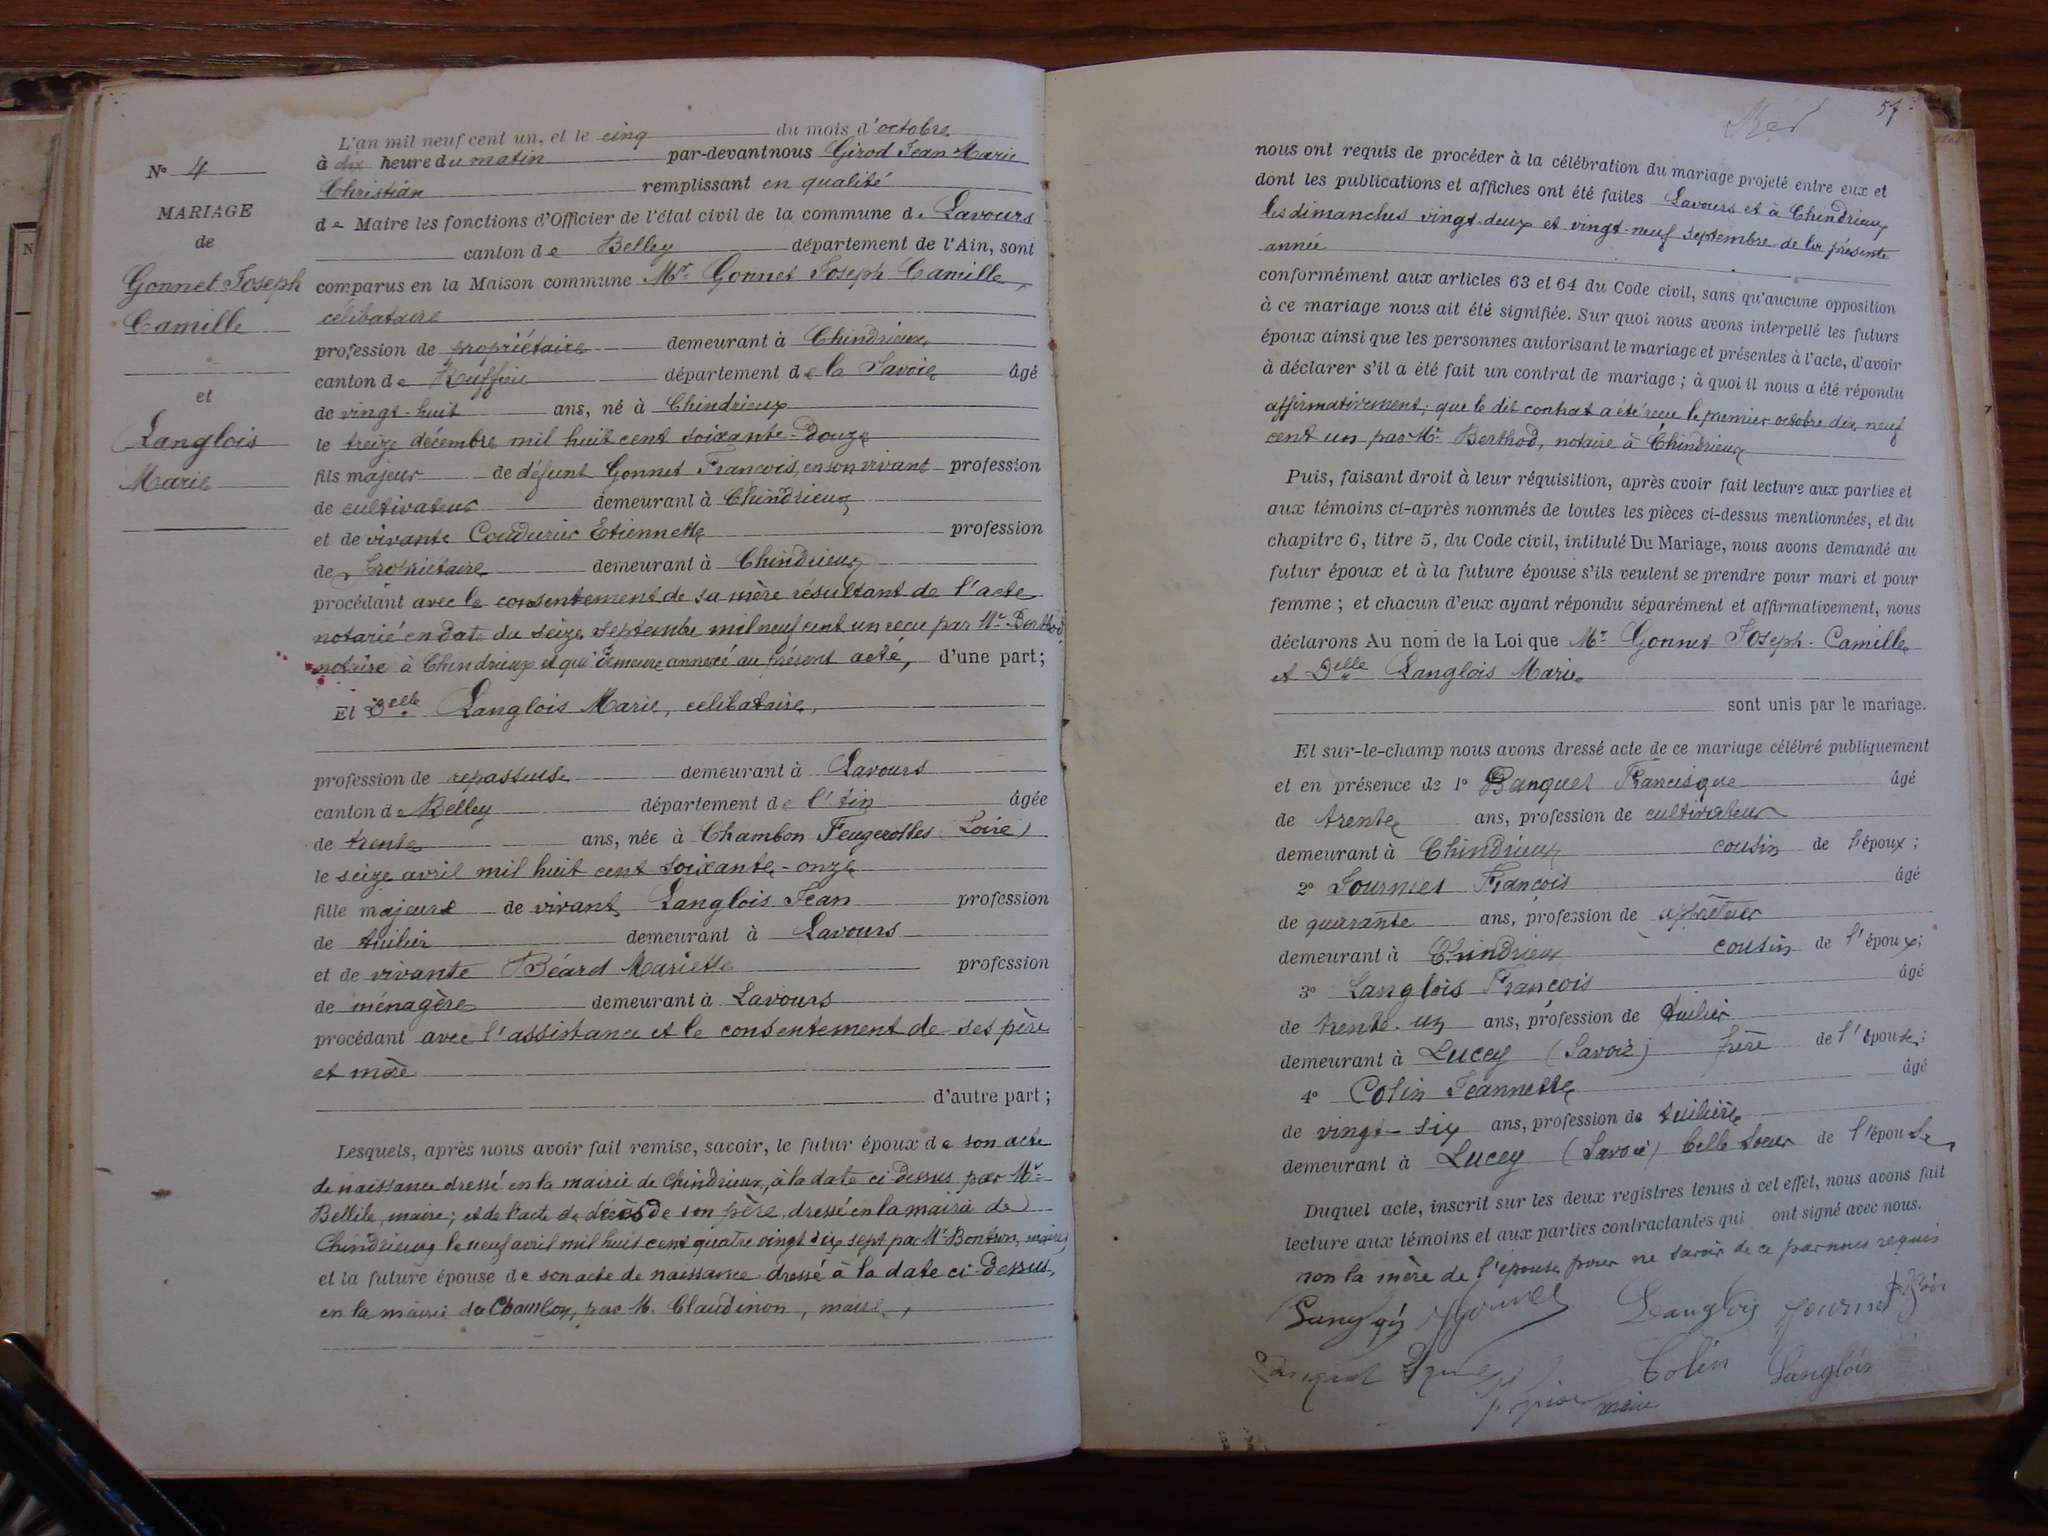 N° 4
MARIAGE
de
Gonnet Joseph
Camille
et
Langlois
Marie
L'an mil neuf cent un, et le cinq du mois d'octobre
à dix heure du matin par-devant nous Girod Jean Marie
Christian remplissant en qualité
de Maire les fonctions d'Officier de l'état civil de la commune de Lavours
canton de Belley département de l'Ain, sont
comparus en la Maison commune Mr Gonnet Joseph Camille,
célibataire
profession de propriétaire demeurant à Chindrieux
canton de Ruffieu département de la Savoie âgé
de vingt-huit ans, né à Chindrieux
le treize décembre mil huit cent soixante-douze
fils majeur de défunt Gonnet François, en son vivant profession
de cultivateur demeurant à Chindrieux
et de vivante Coudurier Etiennette profession
de Propriétaire demeurant à Chindrieux
procédant avec le consentement de sa mère résultant de l'acte
notarié en date du seize septembre mil neuf cent un recu par Me Berthod
notaire à Chindrieux et qui demeure annexé au présent acte, d'une part;
Et Delle Langlois Marie, célibataire,
profession de repasseuse demeurant à Lavours
canton de Belley département de l'Ain âgée
de trente ans, née à Chambon Feugerolles Loire)
le seize avril mil huit cent soixante-onze
fille majeure de vivant Langlois Jean profession
de tuilier demeurant à Lavours
et de vivante Béard Mariette profession
de ménagère demeurant à Lavours
procédant avec l'assistance et le consentement de ses père
et mère
d'autre part;
Lesquels, après nous avoir fait remise, savoir, le futur époux de son acte
de naissance dressé en la mairie de Chindrieux, à la date ci-dessus par Mr
Bellile, maire; et de l'acte de décès de son père, dressé en la mairie de
Chindrieux le neuf avril mil huit cent quatre vingt dix sept par Mr Bontron, maire;
et la future épouse de son acte de naissance dressé à la date ci-dessus,
en la mairie de Chambon, par M. Claudinon, maire,
57
nous ont requis de procéder à la célébration du mariage projeté entre eux et
dont les publications et affiches ont été faites Lavours et à Chindrieux
les dimanches vingt-deux et vingt-neuf septembre de la présente
année
conformément aux articles 63 et 64 du Code civil, sans qu'aucune opposition
à ce mariage nous ait été signifiée. Sur quoi nous avons interpellé les futurs
époux ainsi que les personnes autorisant le mariage et présentes à l'acte, d'avoir
à déclarer s'il a été fait un contrat de mariage; à quoi il nous a été répondu
affirmativement; que le dit contrat a été recu le premier octobre dix neuf
cent un par Me Berthod, notaire à Chindrieux
Puis, faisant droit à leur réquisition, après avoir fait lecture aux parties et
aux témoins ci-après nommés de toutes les pièces ci-dessus mentionnées, et du
chapitre 6, titre 5, du Code civil, intitulé Du Mariage, nous avons demandé au
futur époux et à la future épouse s'ils veulent se prendre pour mari et pour
femme; et chacun d'eux ayant répondu séparément et affirmativement, nous
déclarons Au nom de la Loi que Mr Gonnet Joseph-Camille
et Delle Langlois Marie
sont unis par le mariage.
Et sur-le-champ nous avons dressé acte de ce mariage célébré publiquement
et en présence de 1° Banquet Francisque âgé
de trente ans, profession de cultivateur
demeurant à Chindrieux cousin de l'époux;
2° Fournier François âgé
de quarante ans, profession de
demeurant à Chindrieux cousin de l'époux;
3° Langlois François âgé
de trente-un ans, profession de tuilier
demeurant à Lucey (Savoie) frère de l'épouse;
4° Colin Jeannette âgé
de vingt-six ans, profession de tuilière
demeurant à Lucey (Savoie) belle soeur de l'épouse
Duquel acte, inscrit sur les deux registres tenus à cet effet, nous avons fait
lecture aux témoins et aux parties contractantes qui ont signé avec nous.
non la mère de l'épouse pour ne savoir de ce par nous requis
Langlois
Colin Langlois
maire